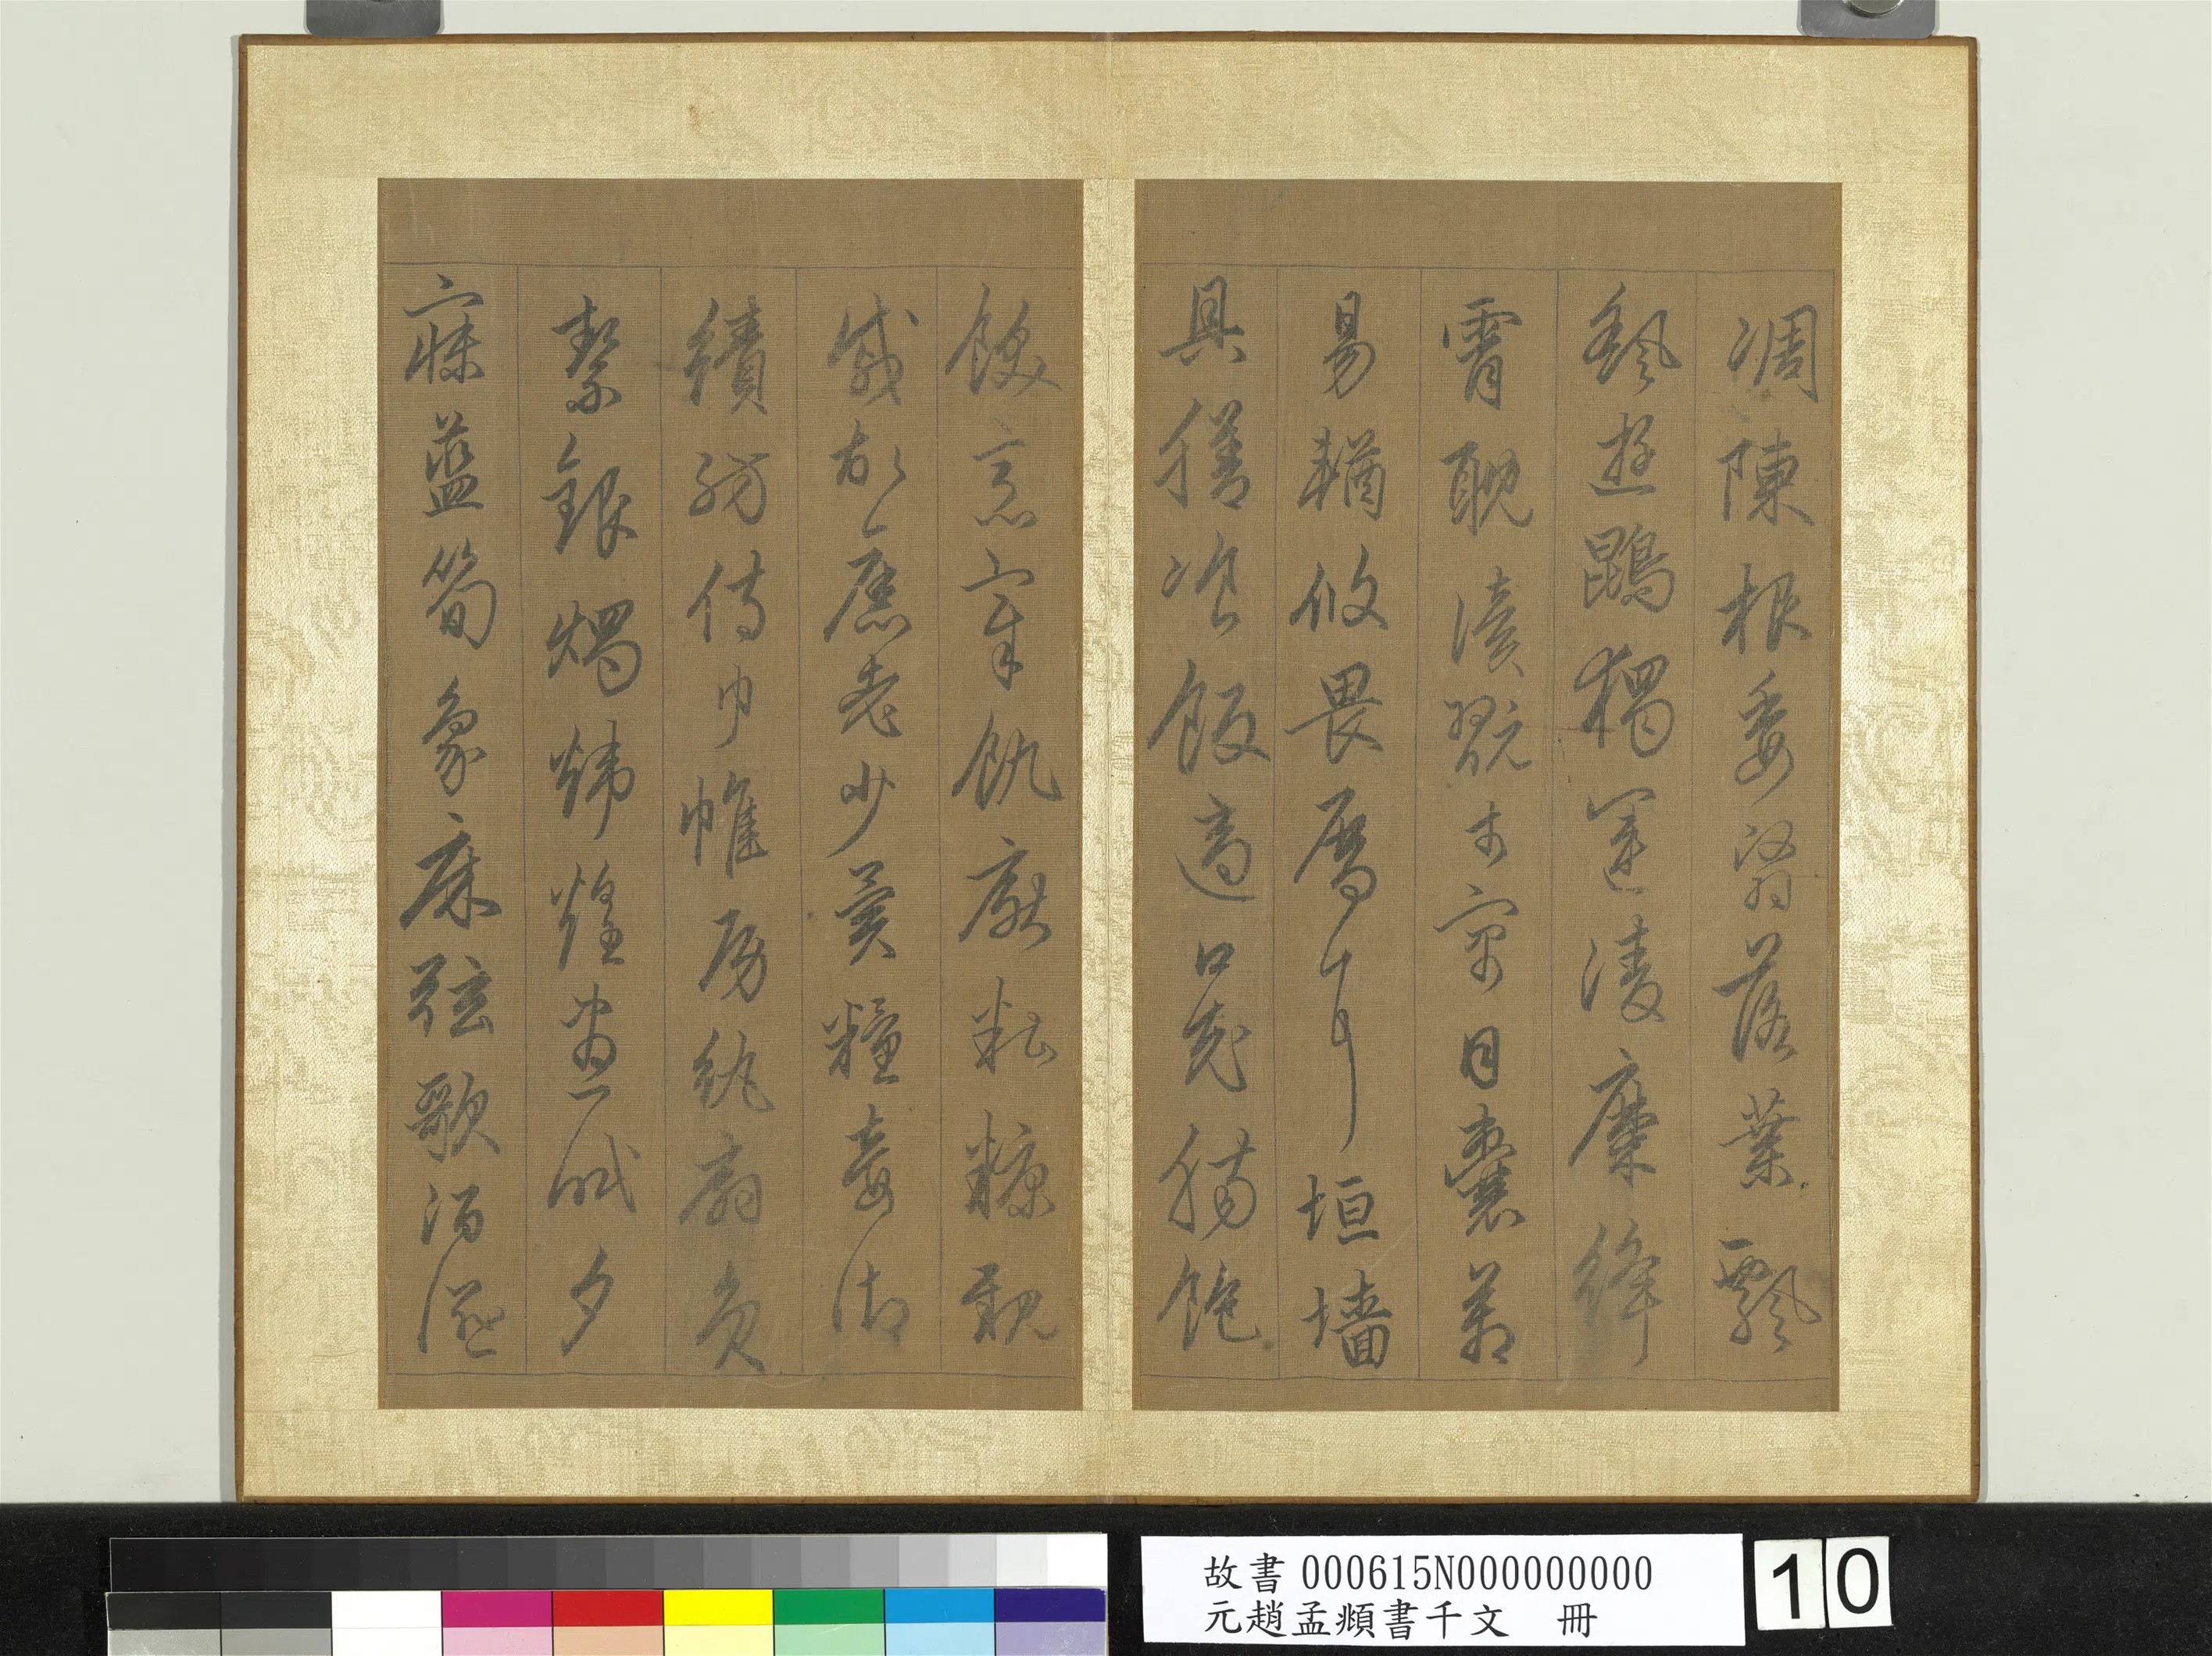 凋陳根委翳落葉飄
颻遊鵾獨運凌摩絳
霄耽讀翫市寓目囊箱
易輶攸畏屬耳垣墻
具膳飡飯適口充腸飽
飫烹宰飢厭糟糠親
戚故舊老少異糧妾御
績紡侍巾帷房紈扇員
絜銀燭煒煌晝眠夕
寐藍筍象床弦歌酒讌
故書 000615N000000000
元趙孟頫書千文 冊
10